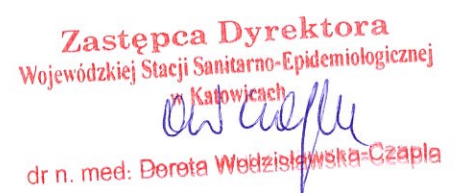 Zastępca Dyrektora
Wojewódzkiej Stacji Sanitarno-Epidemiologicznej
w Katowicach
dr n. med: Dorota Wodzisławska-Czapla